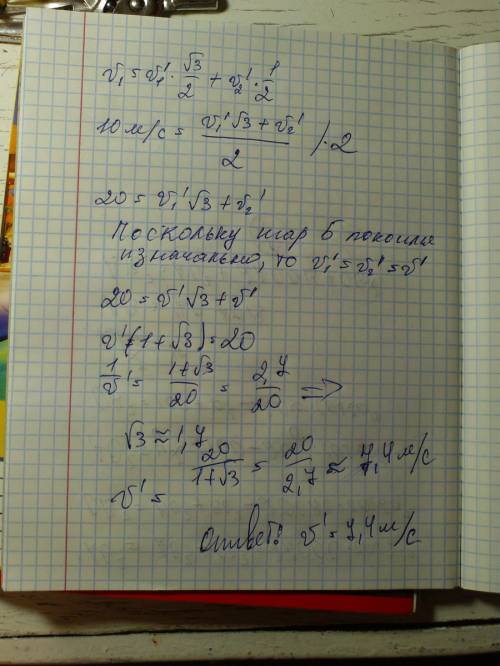 v₁ = v₁' · √3/2 + v₂' · 1/2
10 м/с = (v₁'√3 + v₂')/2 /·2
20 = v₁'√3 + v₂'
Поскольку шар Б покоился
изначально, то v₁' = v₂' = v'
20 = v'√3 + v'
v'(1+√3) = 20
1/v' = (1+√3)/20 = 2,7/20 =>
√3 ≈ 1,7
v' = 20/(1+√3) = 20/2,7 ≈ 7,4 м/с
Ответ: v' = 7,4 м/с